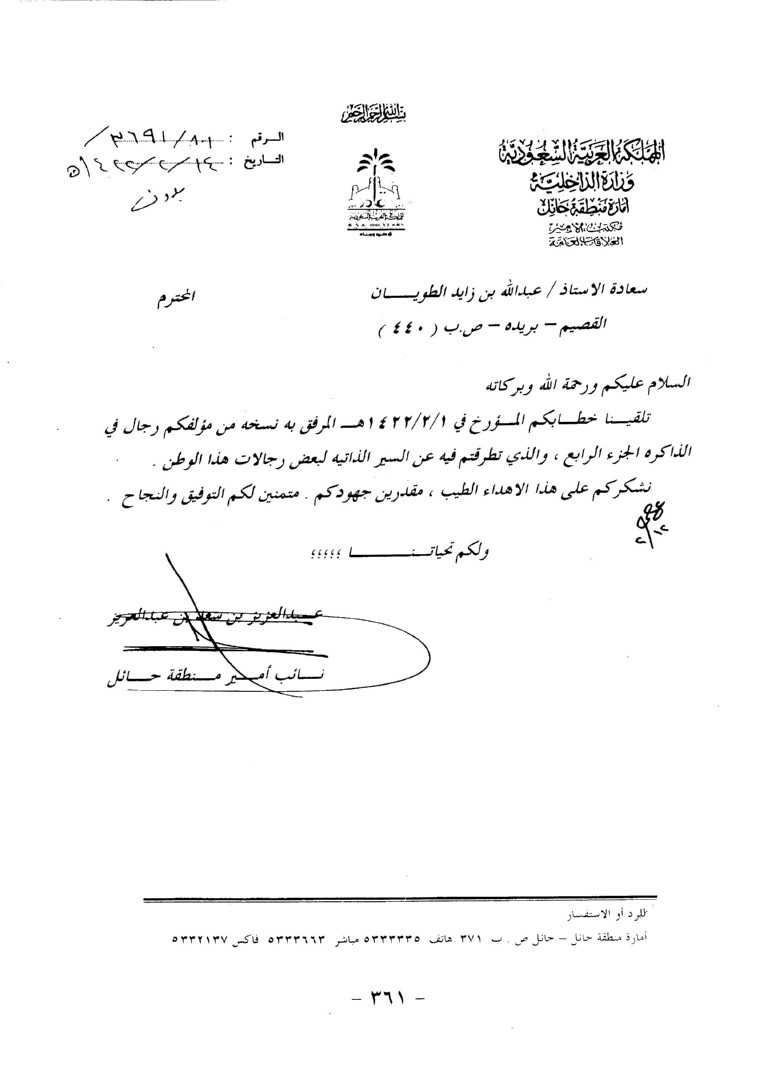 بسم الله الرحمن الرحيم
المملكة العربية السعودية
وزارة الداخلية
امارة منطقة حائل
مكتب نائب الأمير
العلاقات العامة
الرقم : ٣٦٩١/٨١/
التاريخ : ١٤٢٢/٢/١٤هـ
بدون
سعادة الاستاذ / عبدالله بن زايد الطويـــان المحترم
القصيم – بريده – ص.ب ( ٤٤٠ )
السلام عليكم ورحمة الله وبركاته
تلقينـا خطـابكم المـؤرخ في ١٤٢٢/٢/١هــ المرفق به نسخه من مؤلفكم رجال في
الذاكره الجزء الرابع ، والذي تطرقتم فيه عن السير الذاتيه لبعض رجالات هذا الوطن .
نشكركم على هذا الاهداء الطيب ، مقدرين جهودكم . متمنين لكم التوفيق والنجاح .
ولكم تحياتنــــــا ،،،،،
عبدالعزيز بن سعد بن عبدالعزيز
نـائب أمـير مـنطقة حـائل
للرد أو الاستفسار
أمارة منطقة حائل – حائل ص . ب ٣٧١ هاتف ٥٣٣٣٣٣٥ مباشر ٥٣٣٣٦٦٣ فاكس ٥٣٣٢١٣٧
– ٣٦١ –